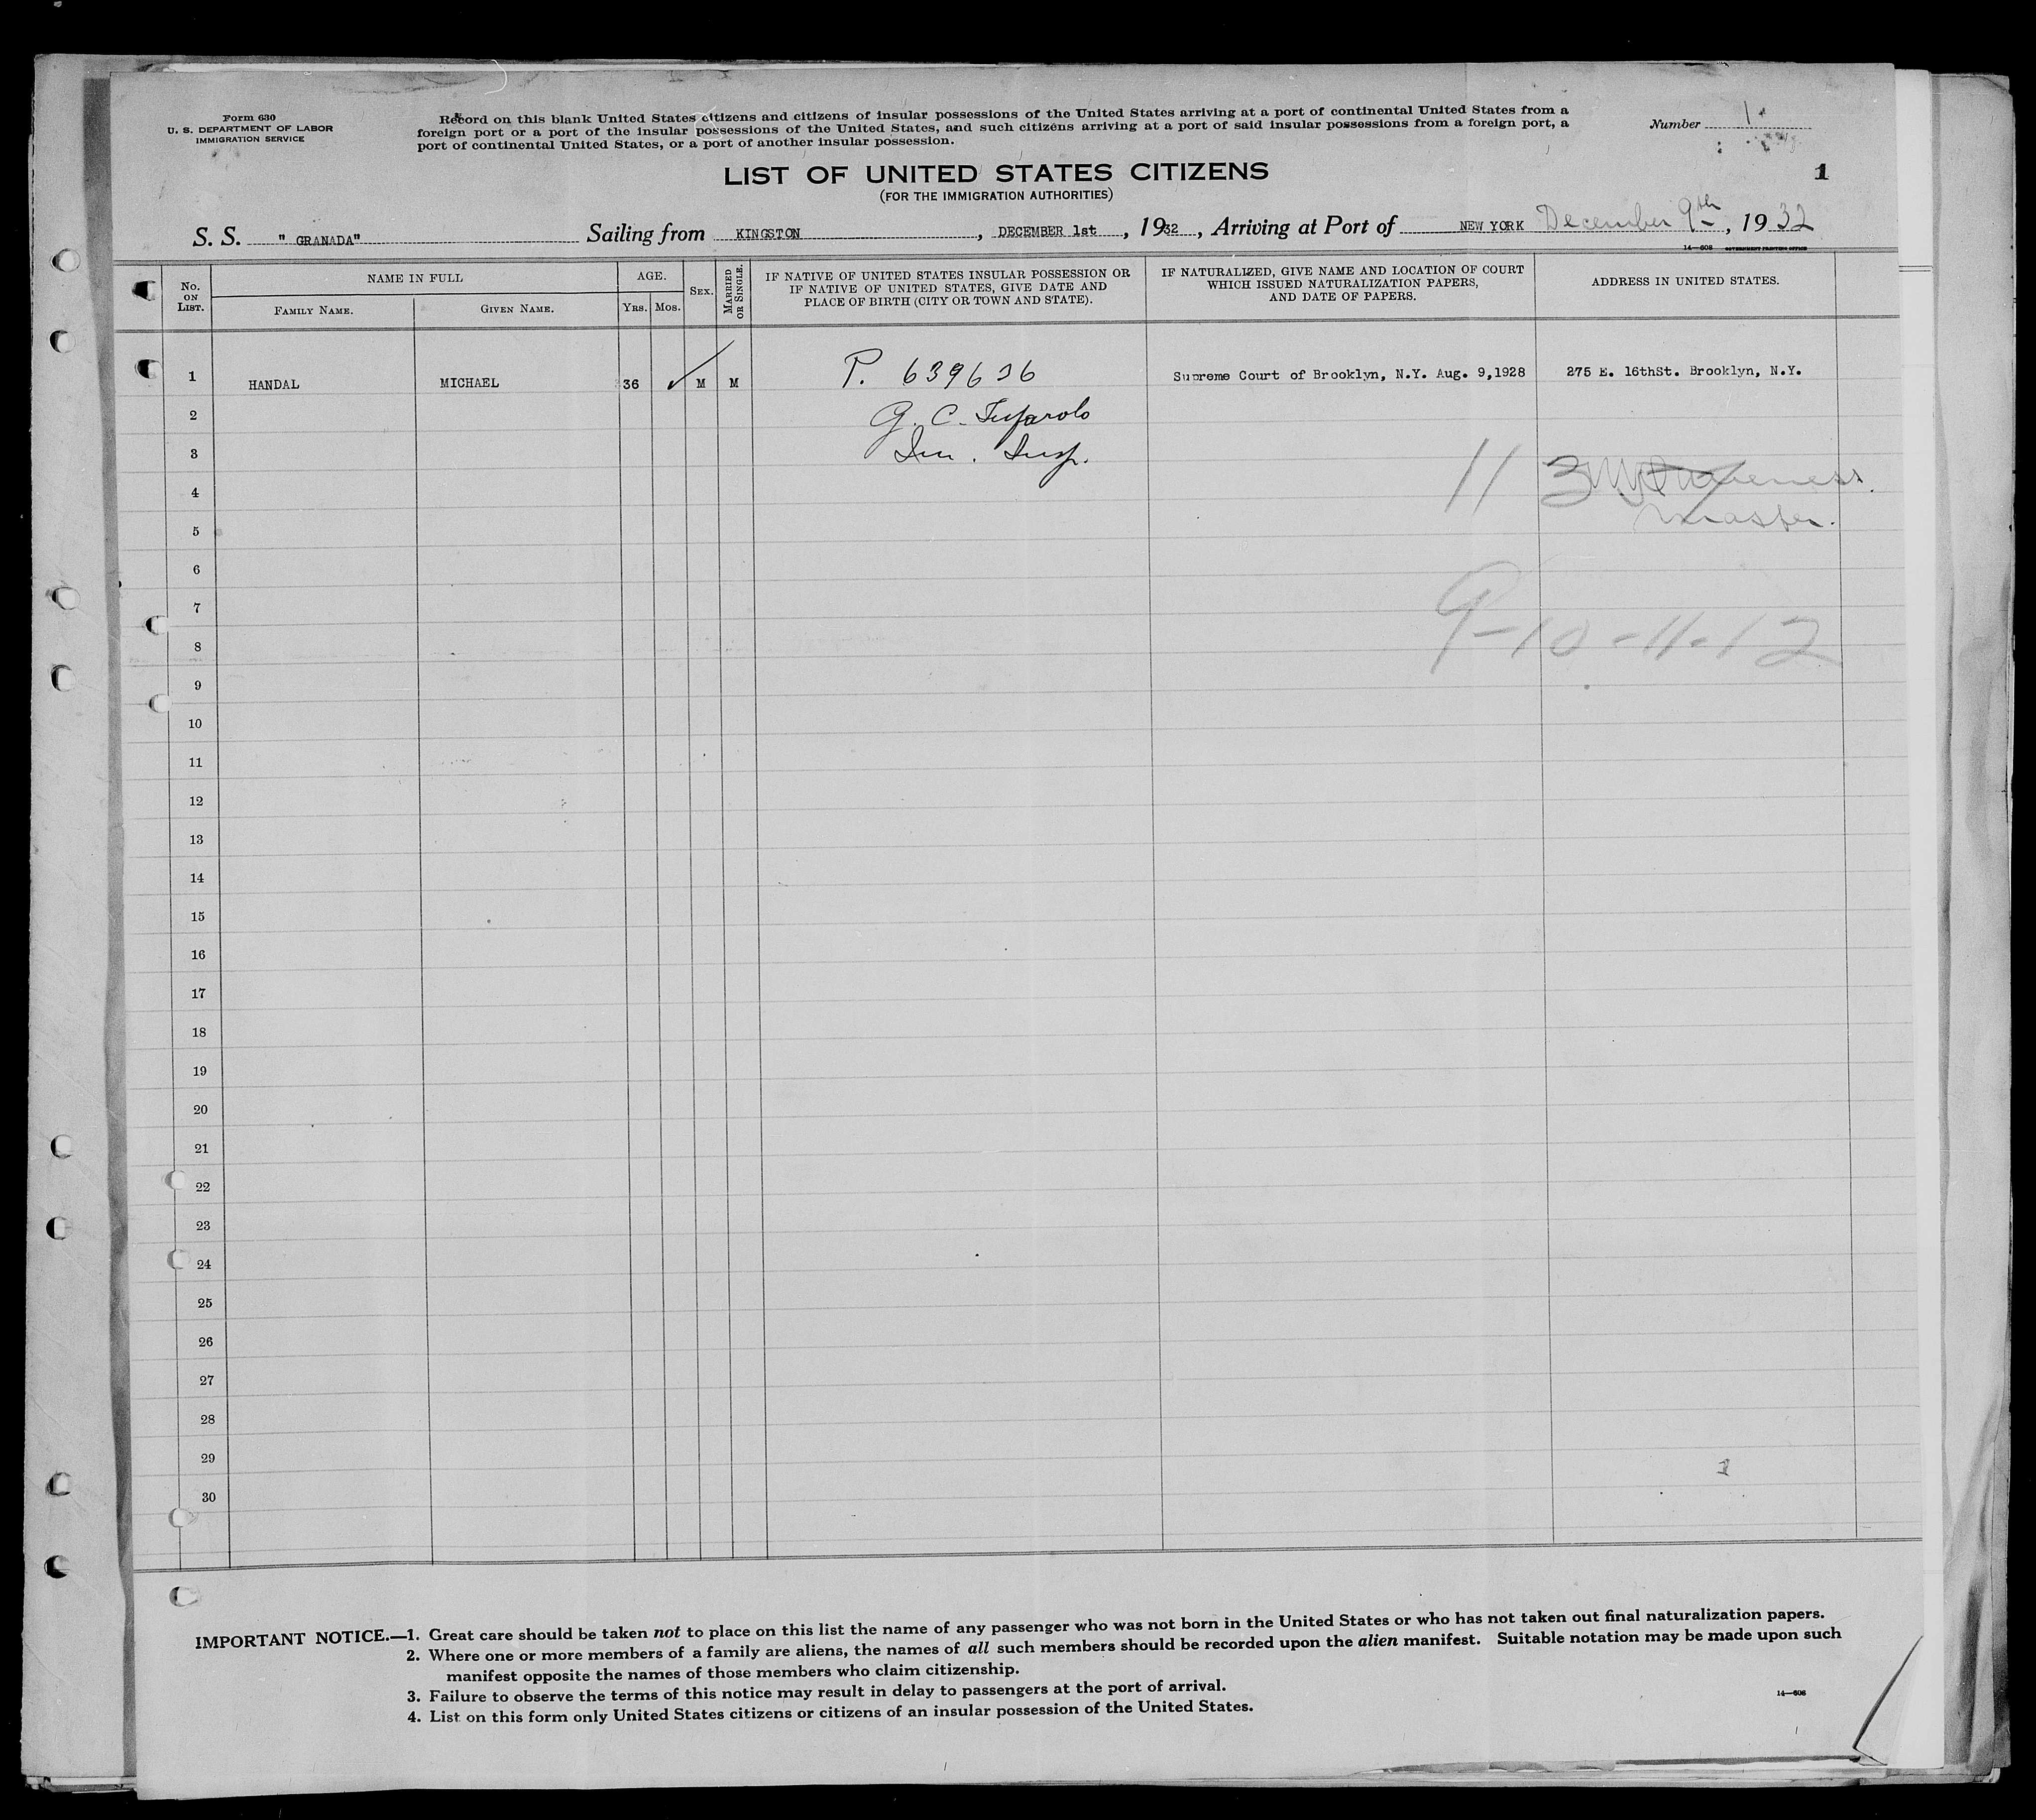 Form 630
U. S. DEPARTMENT OF LABOR
IMMIGRATION SERVICE
Record on this blank United States citizens and citizens of insular possessions of the United States arriving at a port of continental United States from a
foreign port or a port of the insular possessions of the United States, and such citizens arriving at a port of said insular possessions from a foreign port, a
port of continental United States, or a port of another insular possession.
Number 1
1
LIST OF UNITED STATES CITIZENS
(FOR THE IMMIGRATION AUTHORITIES)
S. S. "GRANADA" Sailing from KINGSTON, DECEMBER 1st, 1932, Arriving at Port of NEW YORK December 9th, 1932
14—608 GOVERNMENT PRINTING OFFICE
No. ON LIST.
NAME IN FULL
FAMILY NAME.
GIVEN NAME.
AGE.
YRS. MOS.
SEX.
MARRIED OR SINGLE.
IF NATIVE OF UNITED STATES INSULAR POSSESSION OR
IF NATIVE OF UNITED STATES, GIVE DATE AND
PLACE OF BIRTH (CITY OR TOWN AND STATE).
IF NATURALIZED, GIVE NAME AND LOCATION OF COURT
WHICH ISSUED NATURALIZATION PAPERS,
AND DATE OF PAPERS.
ADDRESS IN UNITED STATES.
1 HANDAL MICHAEL 36 ✓ M M P. 639636 Supreme Court of Brooklyn, N.Y. Aug. 9,1928 275 E. 16thSt. Brooklyn, N.Y.
2 G. C.
3 Im. Insp.
11 3
4
Master.
5
6
7
9-10-11-12
8
9
10
11
12
13
14
15
16
17
18
19
20
21
22
23
24
25
26
27
28
29
1
30
IMPORTANT NOTICE.—1. Great care should be taken not to place on this list the name of any passenger who was not born in the United States or who has not taken out final naturalization papers.
2. Where one or more members of a family are aliens, the names of all such members should be recorded upon the alien manifest. Suitable notation may be made upon such
manifest opposite the names of those members who claim citizenship.
3. Failure to observe the terms of this notice may result in delay to passengers at the port of arrival.
4. List on this form only United States citizens or citizens of an insular possession of the United States.
14—608